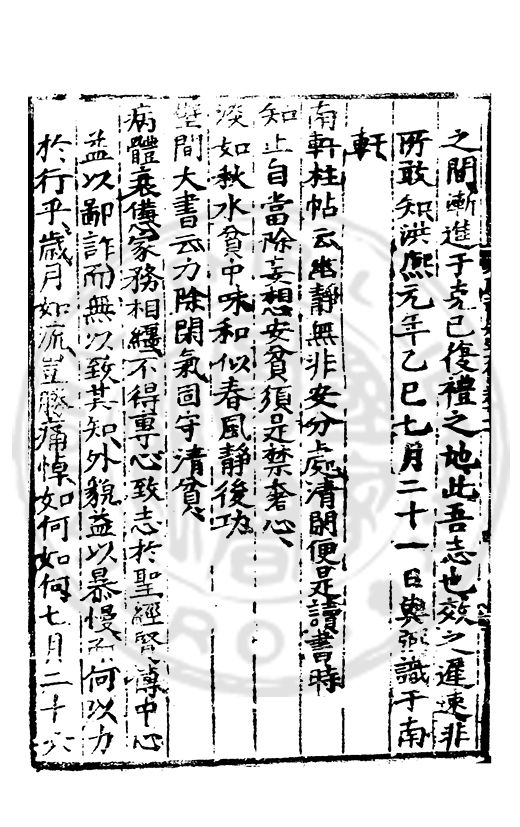 之間漸進于克已復禮之地此吾志也效之遲速非
所敢知洪熙元年乙巳七月二十一日與弼識于南
軒
南軒柱帖云幽靜無非安分處清閒便是讀書時
知止自當除妄想安貧須是禁奢心
淡如秋水貧中味和似春風靜後功
壁間大書云力除閑氣固守清貧
病體衰憊家務相纏不得專心致志於聖經賢傳中心
益以鄙詐而無以致其知外貌益以暴慢而何以力
於行乎歲月如流豈勝痛悼如何如何七月二十六